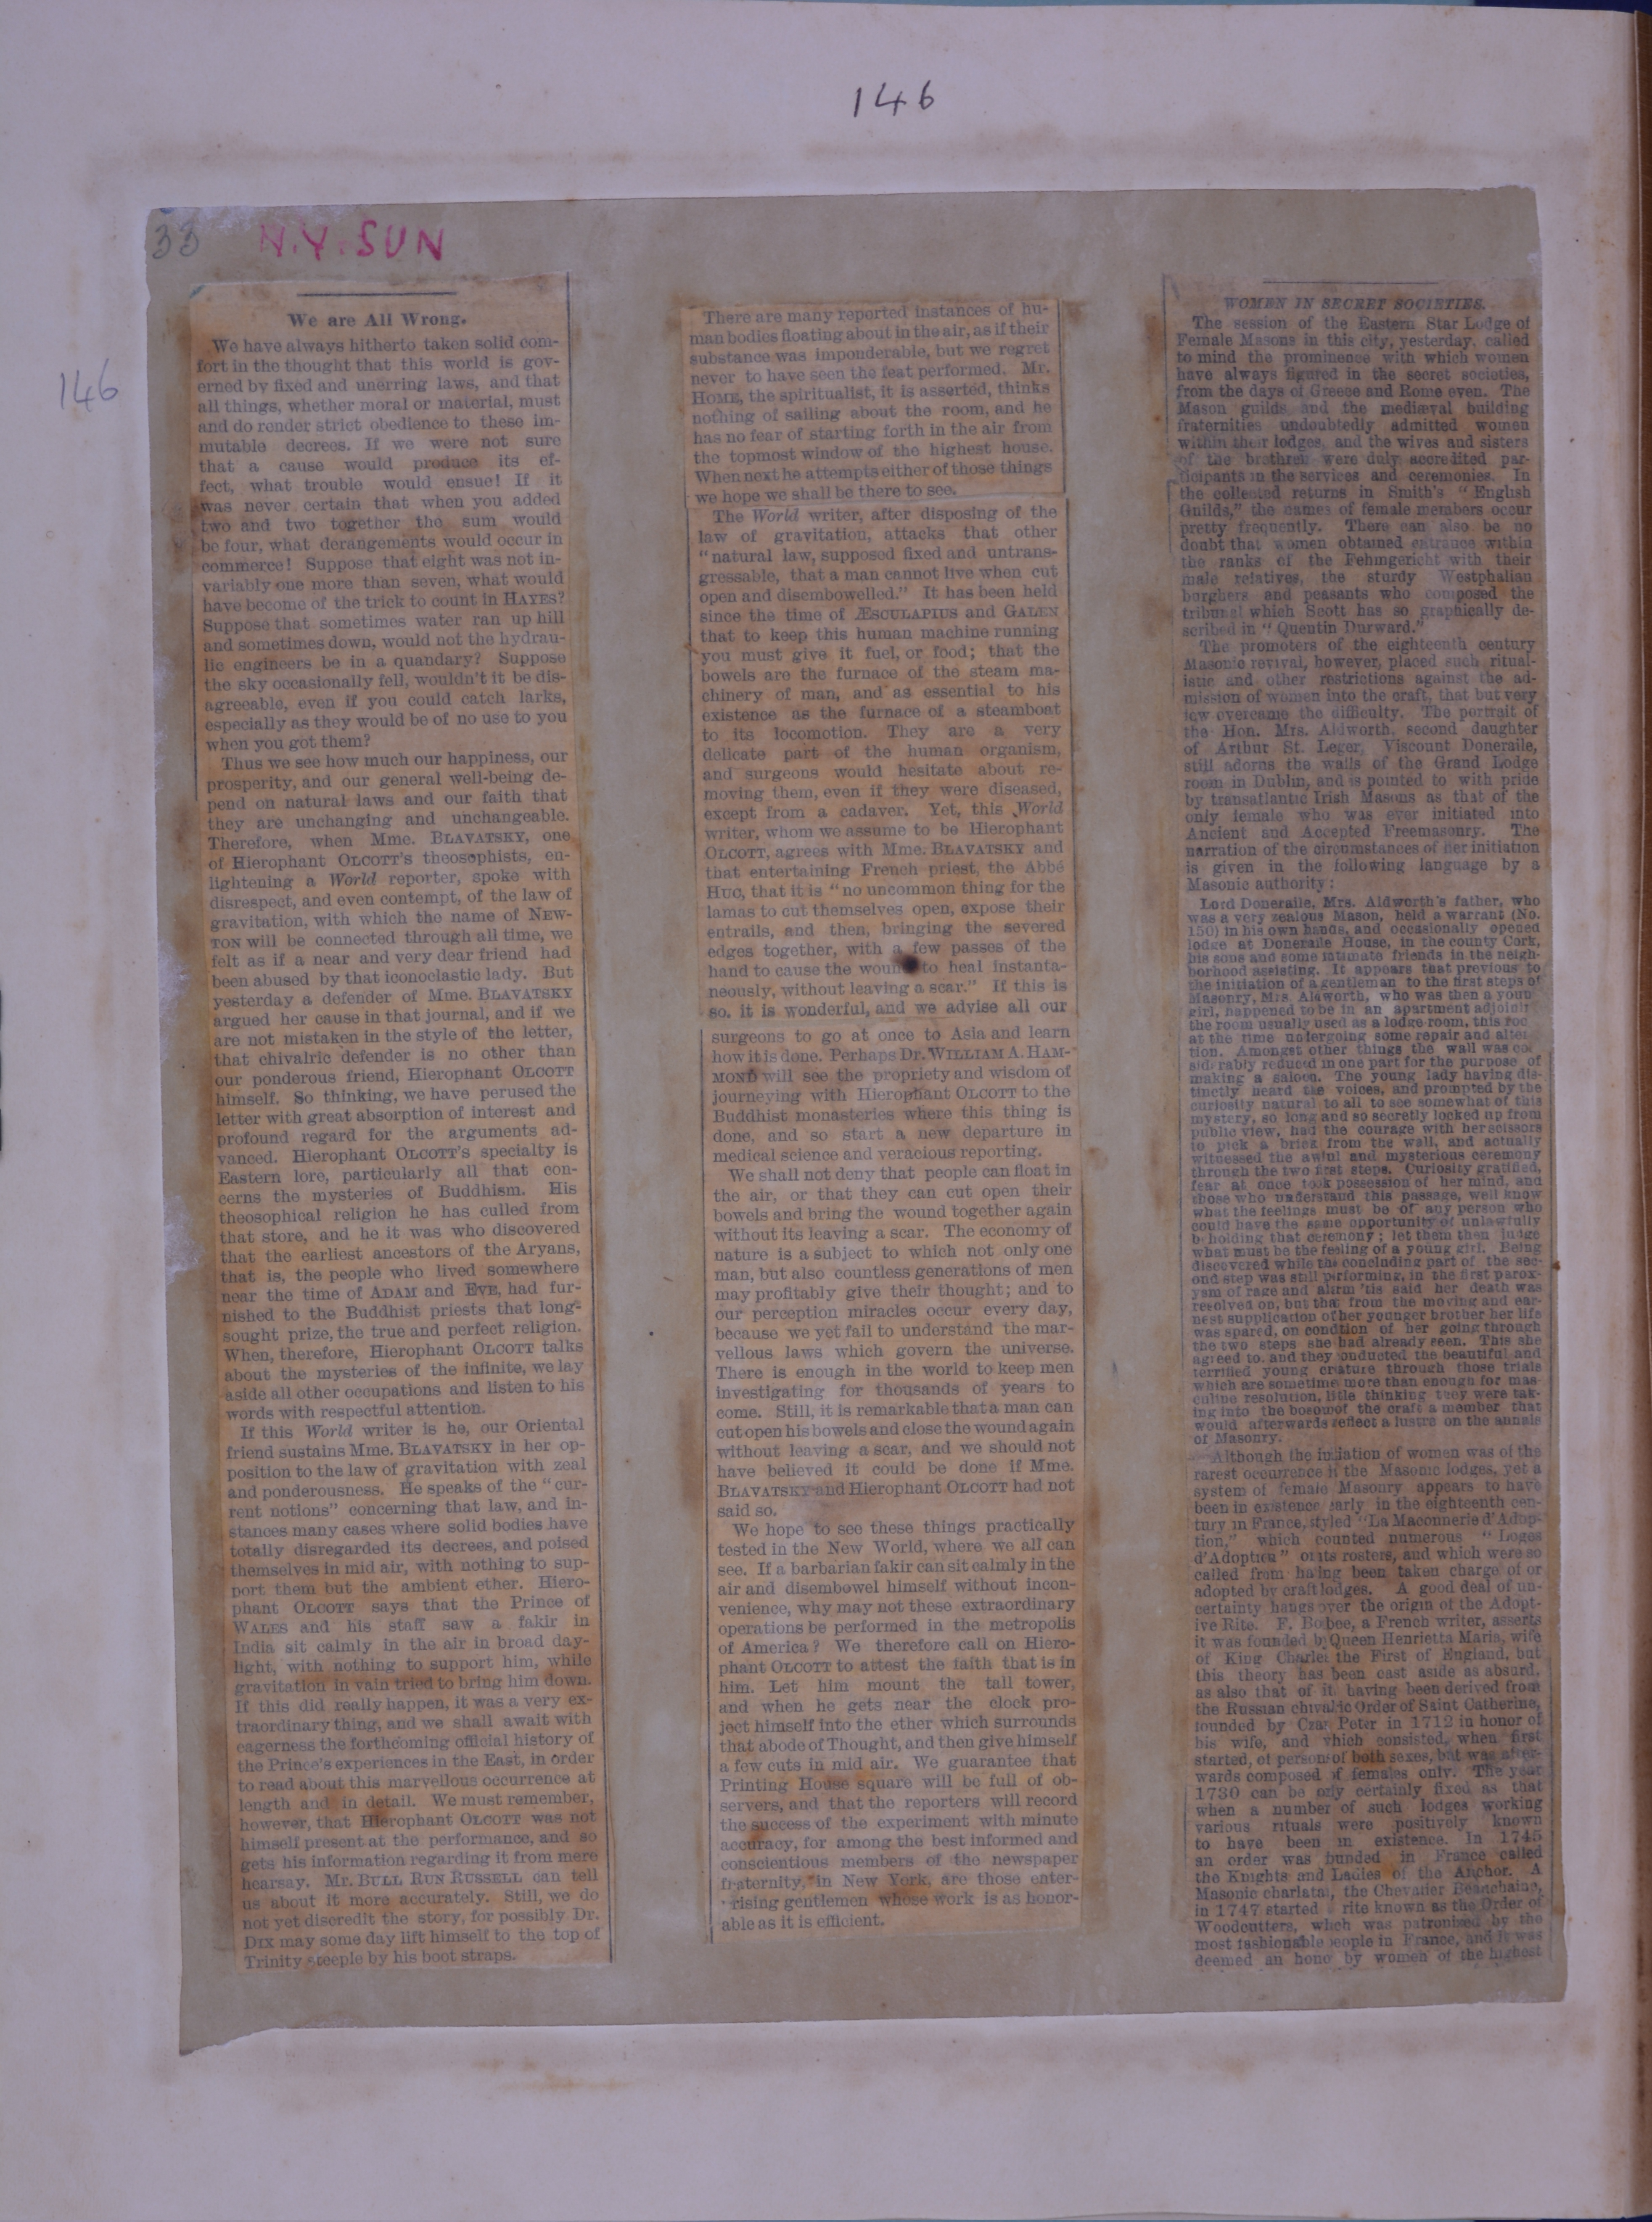 146
146
33
N.Y. SUN
We are All Wrong.
We have always hitherto taken solid com-
fort in the thought that this world is gov-
erned by fixed and unerring laws, and that
all things, whether moral or material, must
and do render strict obedience to these im-
mutable decrees. If we were not sure
that a cause would produce its ef-
fect, what trouble would ensue! If it
was never certain that when you added
two and two together the sum would
be four, what derangements would occur in
commerce! Suppose that eight was not in-
variably one more than seven, what would
have become of the trick to count in HAYES?
Suppose that sometimes water ran up hill
and sometimes down, would not the hydrau-
lic engineers be in a quandary? Suppose
the sky occasionally fell, wouldn't it be dis-
agreeable, even if you could catch larks,
especially as they would be of no use to you
when you got them?
Thus we see how much our happiness, our
prosperity, and our general well-being de-
pend on natural laws and our faith that
they are unchanging and unchangeable.
Therefore, when Mme. BLAVATSKY, one
of Hierophant OLCOTT's theosophists, en-
lightening a World reporter, spoke with
disrespect, and even contempt, of the law of
gravitation, with which the name of NEW-
TON will be connected through all time, we
felt as if a near and very dear friend had
been abused by that iconoclastic lady. But
yesterday a defender of Mme. BLAVATSKY
argued her cause in that journal, and if we
are not mistaken in the style of the letter,
that chivalric defender is no other than
our ponderous friend, Hierophant OLCOTT
himself. So thinking, we have perused the
letter with great absorption of interest and
profound regard for the arguments ad-
vanced. Hierophant OLCOTT's specialty is
Eastern lore, particularly all that con-
cerns the mysteries of Buddhism. His
theosophical religion he has culled from
that store, and he it was who discovered
that the earliest ancestors of the Aryans,
that is, the people who lived somewhere
near the time of ADAM and EVE, had fur-
nished to the Buddhist priests that long-
sought prize, the true and perfect religion.
When, therefore, Hierophant OLCOTT talks
about the mysteries of the infinite, we lay
aside all other occupations and listen to his
words with respectful attention.
If this World writer is he, our Oriental
friend sustains Mme. BLAVATSKY in her op-
position to the law of gravitation with zeal
and ponderousness. He speaks of the "cur-
rent notions" concerning that law, and in-
stances many cases where solid bodies have
totally disregarded its decrees, and poised
themselves in mid air, with nothing to sup-
port them but the ambient ether. Hiero-
phant OLCOTT says that the Prince of
WALES and his staff saw a fakir in
India sit calmly in the air in broad day-
light, with nothing to support him, while
gravitation in vain tried to bring him down.
If this did really happen, it was a very ex-
traordinary thing, and we shall await with
eagerness the forthcoming official history of
the Prince's experiences in the East, in order
to read about this marvellous occurrence at
length and in detail. We must remember,
however, that Hierophant OLCOTT was not
himself present at the performance, and so
gets his information regarding it from mere
hearsay. Mr. BULL RUN RUSSELL can tell
us about it more accurately. Still, we do
not yet discredit the story, for possibly Dr.
DIX may some day lift himself to the top of
Trinity steeple by his boot straps.
There are many reported instances of hu-
man bodies floating about in the air, as if their
substance was imponderable, but we regret
never to have seen the feat performed. Mr.
HOME, the spiritualist, it is asserted, thinks
nothing of sailing about the room, and he
has no fear of starting forth in the air from
the topmost window of the highest house.
When next he attempts either of those things
we hope we shall be there to see.
The World writer, after disposing of the
law of gravitation, attacks that other
"natural law, supposed fixed and untrans-
gressable, that a man cannot live when cut
open and disembowelled." It has been held
since the time of ÆSCULAPIUS and GALEN
that to keep this human machine running
you must give it fuel, or food; that the
bowels are the furnace of the steam ma-
chinery of man, and as essential to his
existence as the furnace of a steamboat
to its locomotion. They are a very
delicate part of the human organism,
and surgeons would hesitate about re-
moving them, even if they were diseased,
except from a cadaver. Yet, this World
writer, whom we assume to be Hierophant
OLCOTT, agrees with Mme. BLAVATSKY and
that entertaining French priest, the Abbé
HUC, that it is "no uncommon thing for the
lamas to cut themselves open, expose their
entrails, and then, bringing the severed
edges together, with a few passes of the
hand to cause the wound to heal instanta-
neously, without leaving a scar." If this is
so, it is wonderful, and we advise all our
surgeons to go at once to Asia and learn
how it is done. Perhaps Dr. WILLIAM A. HAM-
MOND will see the propriety and wisdom of
journeying with Hierophant OLCOTT to the
Buddhist monasteries where this thing is
done, and so start a new departure in
medical science and veracious reporting.
We shall not deny that people can float in
the air, or that they can cut open their
bowels and bring the wound together again
without its leaving a scar. The economy of
nature is a subject to which not only one
man, but also countless generations of men
may profitably give their thought; and to
our perception miracles occur every day,
because we yet fail to understand the mar-
vellous laws which govern the universe.
There is enough in the world to keep men
investigating for thousands of years to
come. Still, it is remarkable that a man can
cut open his bowels and close the wound again
without leaving a scar, and we should not
have believed it could be done if Mme.
BLAVATSKY and Hierophant OLCOTT had not
said so.
We hope to see these things practically
tested in the New World, where we all can
see. If a barbarian fakir can sit calmly in the
air and disembowel himself without incon-
venience, why may not these extraordinary
operations be performed in the metropolis
of America? We therefore call on Hiero-
phant OLCOTT to attest the faith that is in
him. Let him mount the tall tower,
and when he gets near the clock pro-
ject himself into the ether which surrounds
that abode of Thought, and then give himself
a few cuts in mid air. We guarantee that
Printing House square will be full of ob-
servers, and that the reporters will record
the success of the experiment with minute
accuracy, for among the best informed and
conscientious members of the newspaper
fraternity, in New York, are those enter-
rising gentlemen whose work is as honor-
able as it is efficient.
WOMEN IN SECRET SOCIETIES.
The session of the Eastern Star Lodge of
Female Masons in this city, yesterday, called
to mind the prominence with which women
have always figured in the secret societies,
from the days of Greece and Rome even. The
Mason guilds and the mediæval building
fraternities undoubtedly admitted women
within their lodges, and the wives and sisters
of the brethren were duly accredited par-
ticipants in the services and ceremonies. In
the collected returns in Smith's "English
Guilds," the names of female members occur
pretty frequently. There can also be no
doubt that women obtained entrance within
the ranks of the Fehmgericht with their
male relatives, the sturdy Westphalian
burghers and peasants who composed the
tribunal which Scott has so graphically de-
scribed in "Quentin Durward."
The promoters of the eighteenth century
Masonic revival, however, placed such ritual-
istic and other restrictions against the ad-
mission of women into the craft, that but very
few overcame the difficulty. The portrait of
the Hon. Mrs. Aldworth, second daughter
of Arthur St. Leger, Viscount Doneraile,
still adorns the walls of the Grand Lodge
room in Dublin, and is pointed to with pride
by transatlantic Irish Masons as that of the
only female who was ever initiated into
Ancient and Accepted Freemasonry. The
narration of the circumstances of her initiation
is given in the following language by a
Masonic authority:
Lord Doneraile, Mrs. Aldworth's father, who
was a very zealous Mason, held a warrant (No.
150) in his own hands, and occasionally opened
lodge at Doneraile House, in the county Cork,
his sons and some intimate friends in the neigh-
borhood assisting. It appears that previous to
the initiation of a gentleman to the first steps of
Masonry, Mrs. Aldworth, who was then a youn
girl, happened to be in an apartment adjoinin
the room usually used as a lodge room, this roo
at the time undergoing some repair and alter
tion. Amongst other things the wall was co
siderably reduced in one part for the purpose of
making a saloon. The young lady having dis-
tinctly heard the voices, and prompted by the
curiosity natural to all to see somewhat of this
mystery, so long and so secretly locked up from
public view, had the courage with her scissors
to pick a brick from the wall, and actually
witnessed the awful and mysterious ceremony
through the two first steps. Curiosity gratified,
fear at once took possession of her mind, and
those who understand this passage, well know
what the feelings must be of any person who
could have the same opportunity of unlawfully
beholding that ceremony; let them then judge
what must be the feeling of a young girl. Being
discovered while the concluding part of the sec-
ond step was still performing, in the first parox-
ysm of rage and alarm 'tis said her death was
resolved on, but that from the moving and ear-
nest supplication of her younger brother her life
was spared, on condition of her going through
the two steps she had already seen. This she
agreed to, and they conducted the beautiful and
terrified young creature through those trials
which are sometime more than enough for mas-
culine resolution, little thinking they were tak-
ing into the bosom of the craft a member that
would afterwards reflect a lustre on the annals
of Masonry.
Although the initiation of women was of the
rarest occurrence in the Masonic lodges, yet a
system of female Masonry appears to have
been in existence early in the eighteenth cen-
tury in France, styled "La Maconnerie d'Adop-
tion," which counted numerous "Loges
d'Adoption" on its rosters, and which were so
called from having been taken charge of or
adopted by craft lodges. A good deal of un-
certainty hangs over the origin of the Adopt-
ive Rite. F. Boubee, a French writer, asserts
it was founded by Queen Henrietta Maria, wife
of King Charles the First of England, but
this theory has been cast aside as absurd,
as also that of it having been derived from
the Russian chivalric Order of Saint Catherine,
founded by Czar Peter in 1712 in honor of
his wife, and which consisted, when first
started, of persons of both sexes, but was after-
wards composed of females only. The year
1730 can be only certainly fixed as that
when a number of such lodges working
various rituals were positively known
to have been in existence. In 1745
an order was founded in France called
the Knights and Ladies of the Anchor. A
Masonic charlatan, the Chevalier Beauchaine,
in 1747 started rite known as the Order of
Woodcutters, which was patronized by the
most fashionable people in France, and it was
deemed an honor by women of the highest